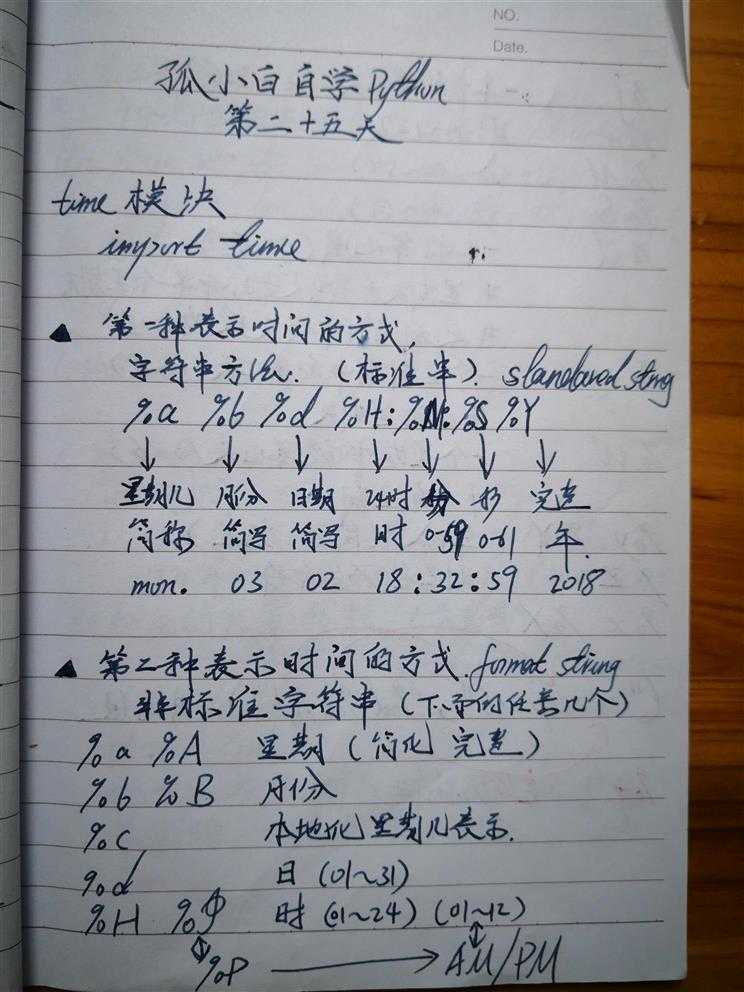 NO.
Date.
孤小白自学Python
第二十五天
time 模块
import time
▲ 第一种表示时间的方式
字符串方法. (标准串).
%a %b %d %H:%M:%S %Y
↓ ↓ ↓ ↓ ↓ ↓ ↓
星期几 月份 日期 24时 分 秒 完整
简称 简写 简写 时 0-59 0-61 年.
mon. 03 02 18:32:59 2018
▲ 第二种表示时间的方式. format string
非标准字符串 (下面的任意几个)
%a %A 星期 (简化 完整)
%b %B 月份
%c 本地化星期几表示.
%d 日 (01~31)
%H 时 (01~24) (01~12)
%P → AM/PM